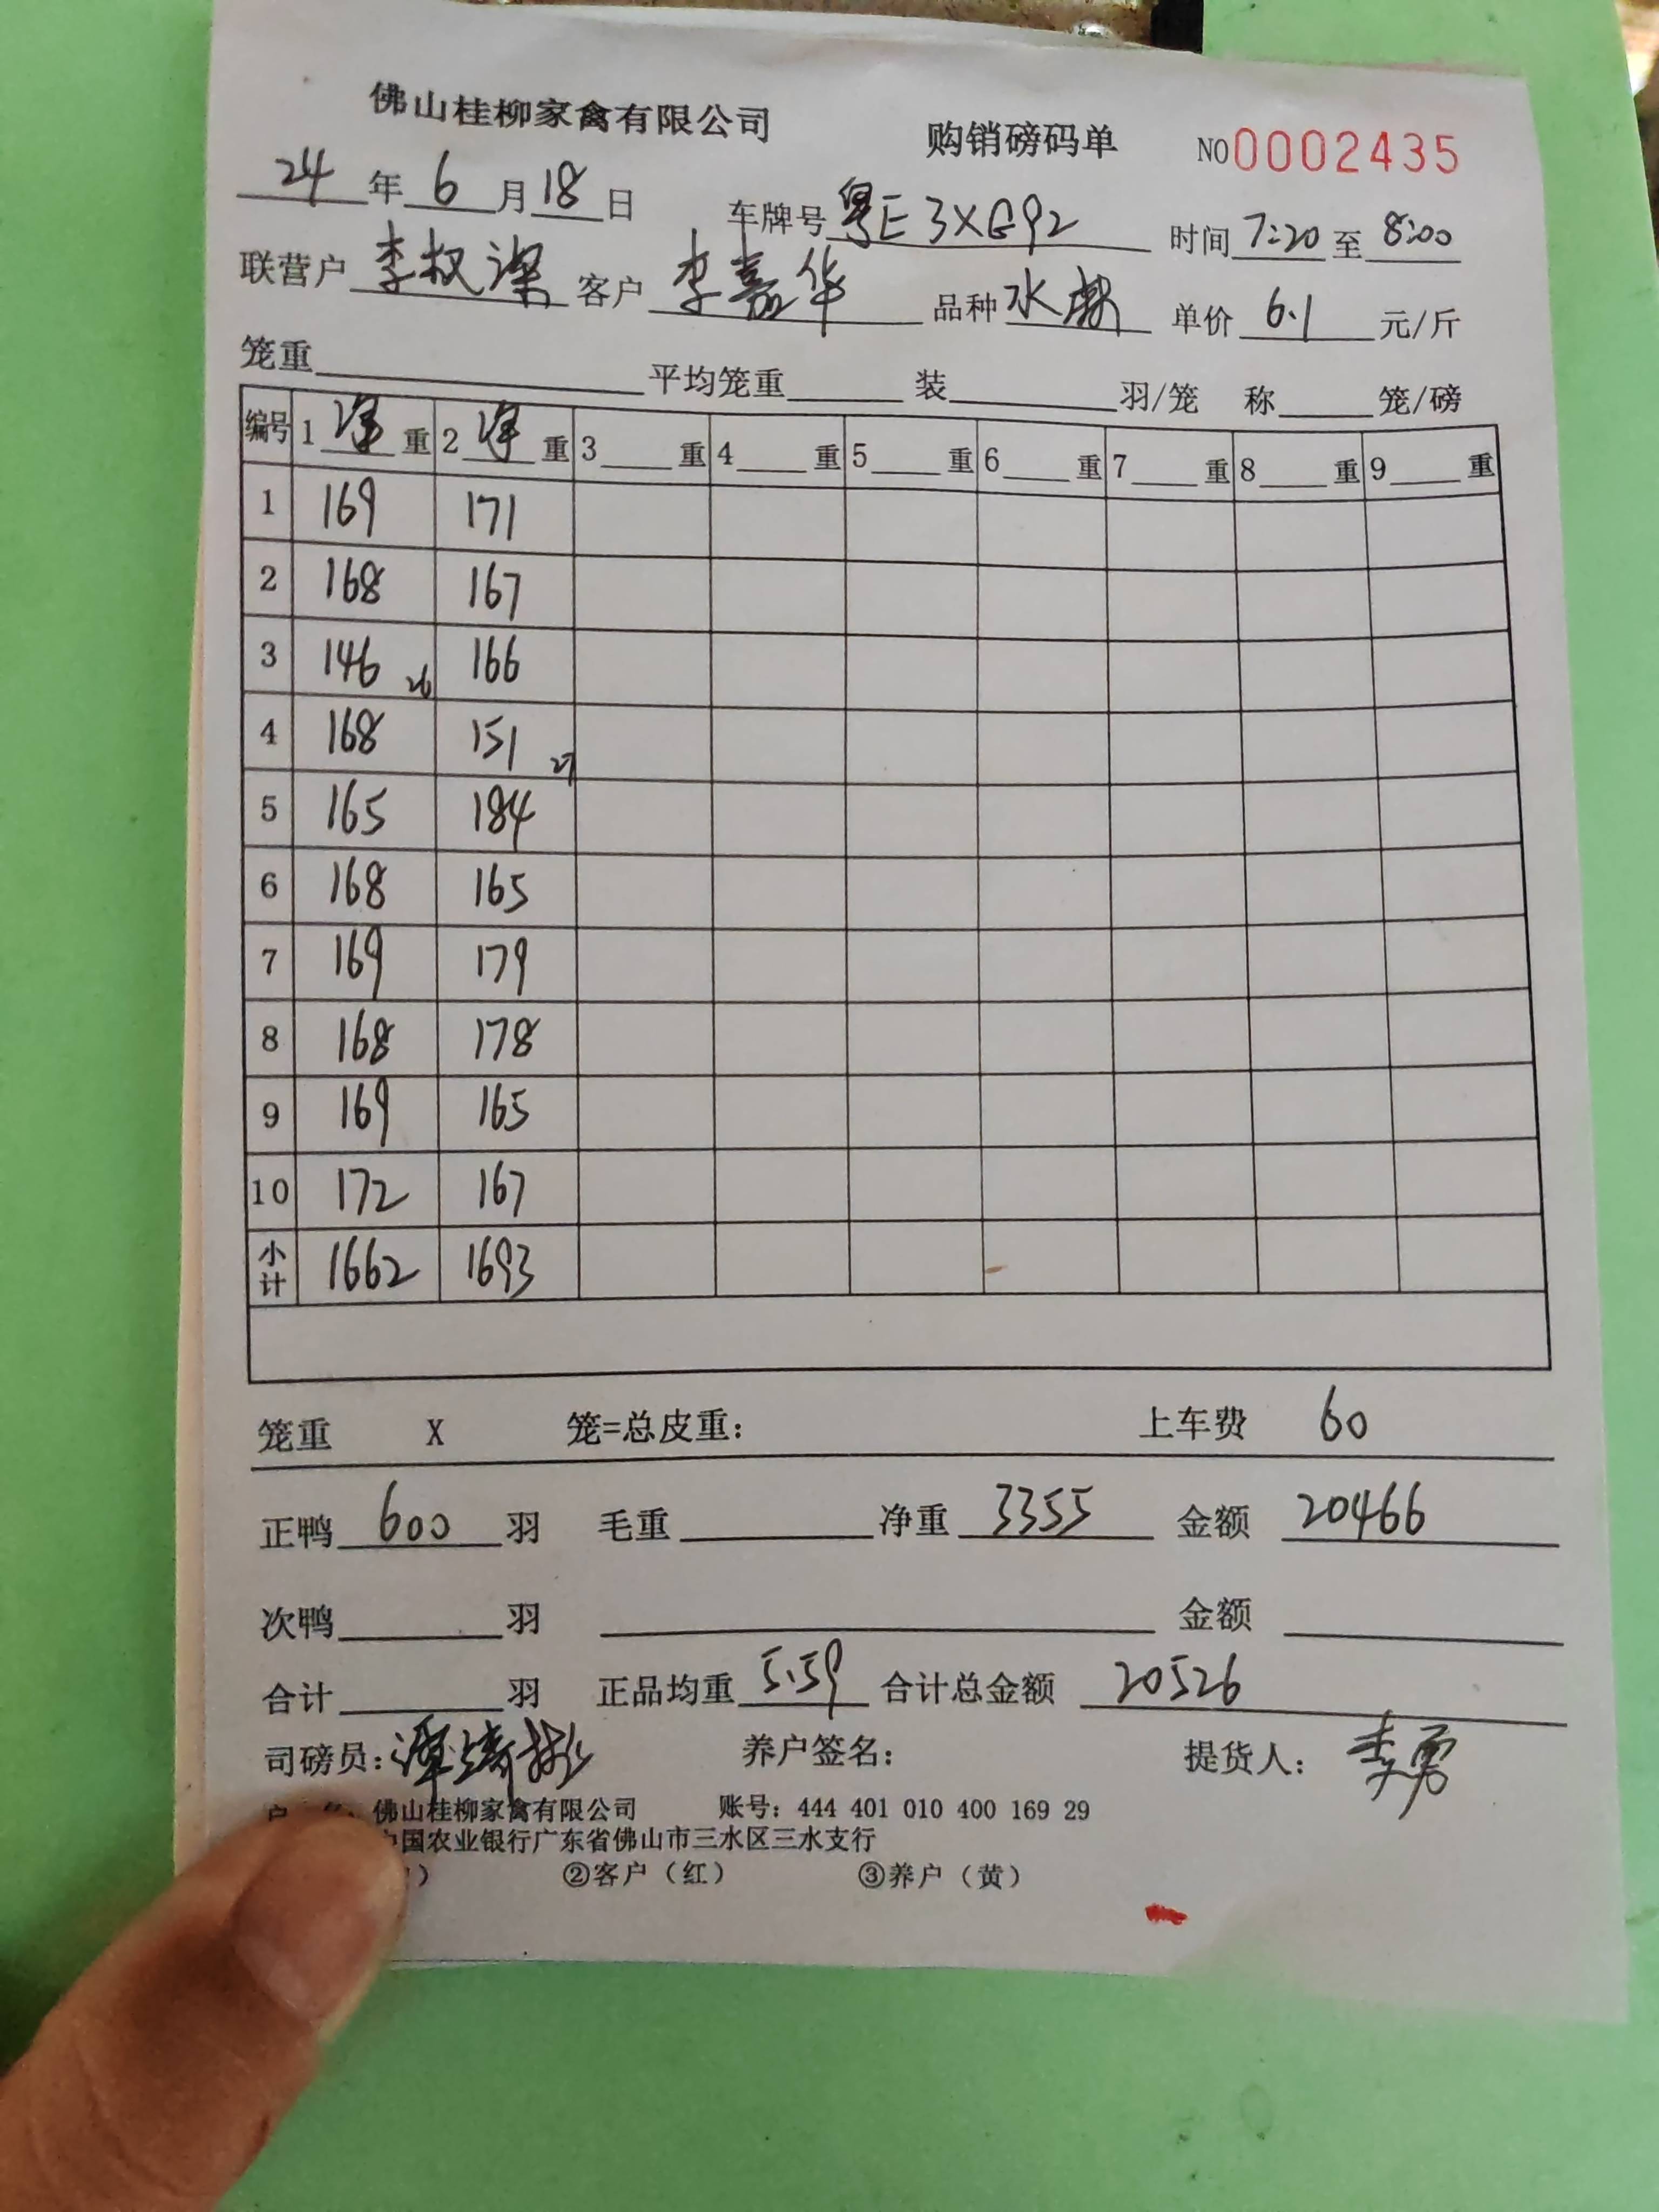 佛山桂柳家禽有限公司 购销磅码单 NO0002435
24年6月18日 车牌号粤E3XG92 时间7:20至8:00
联营户李权 客户李嘉华 品种水 单价6.1元/斤
笼重 平均笼重 装 羽/笼 称 笼/磅
编号 1净重 2净重 3重 4重 5重 6重 7重 8重 9重
1 169 171
2 168 167
3 146 26 166
4 168 151 27
5 165 184
6 168 165
7 169 179
8 168 178
9 169 165
10 172 167
小计 1662 1693
笼重 X 笼=总皮重: 上车费 60
正鸭600羽 毛重 净重3355 金额20466
次鸭 羽 金额
合计 羽 正品均重5.59 合计总金额20526
司磅员:谭 养户签名: 提货人:李勇
佛山桂柳家禽有限公司 账号: 444 401 010 400 169 29
中国农业银行广东省佛山市三水区三水支行
②客户(红) ③养户(黄)